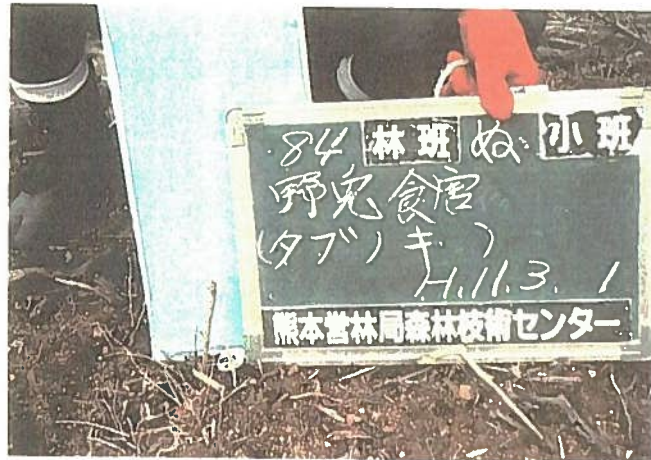 84 林班 ぬ 小班
野兎食害
(タブノキ)
H.11.3.1
熊本営林局森林技術センター